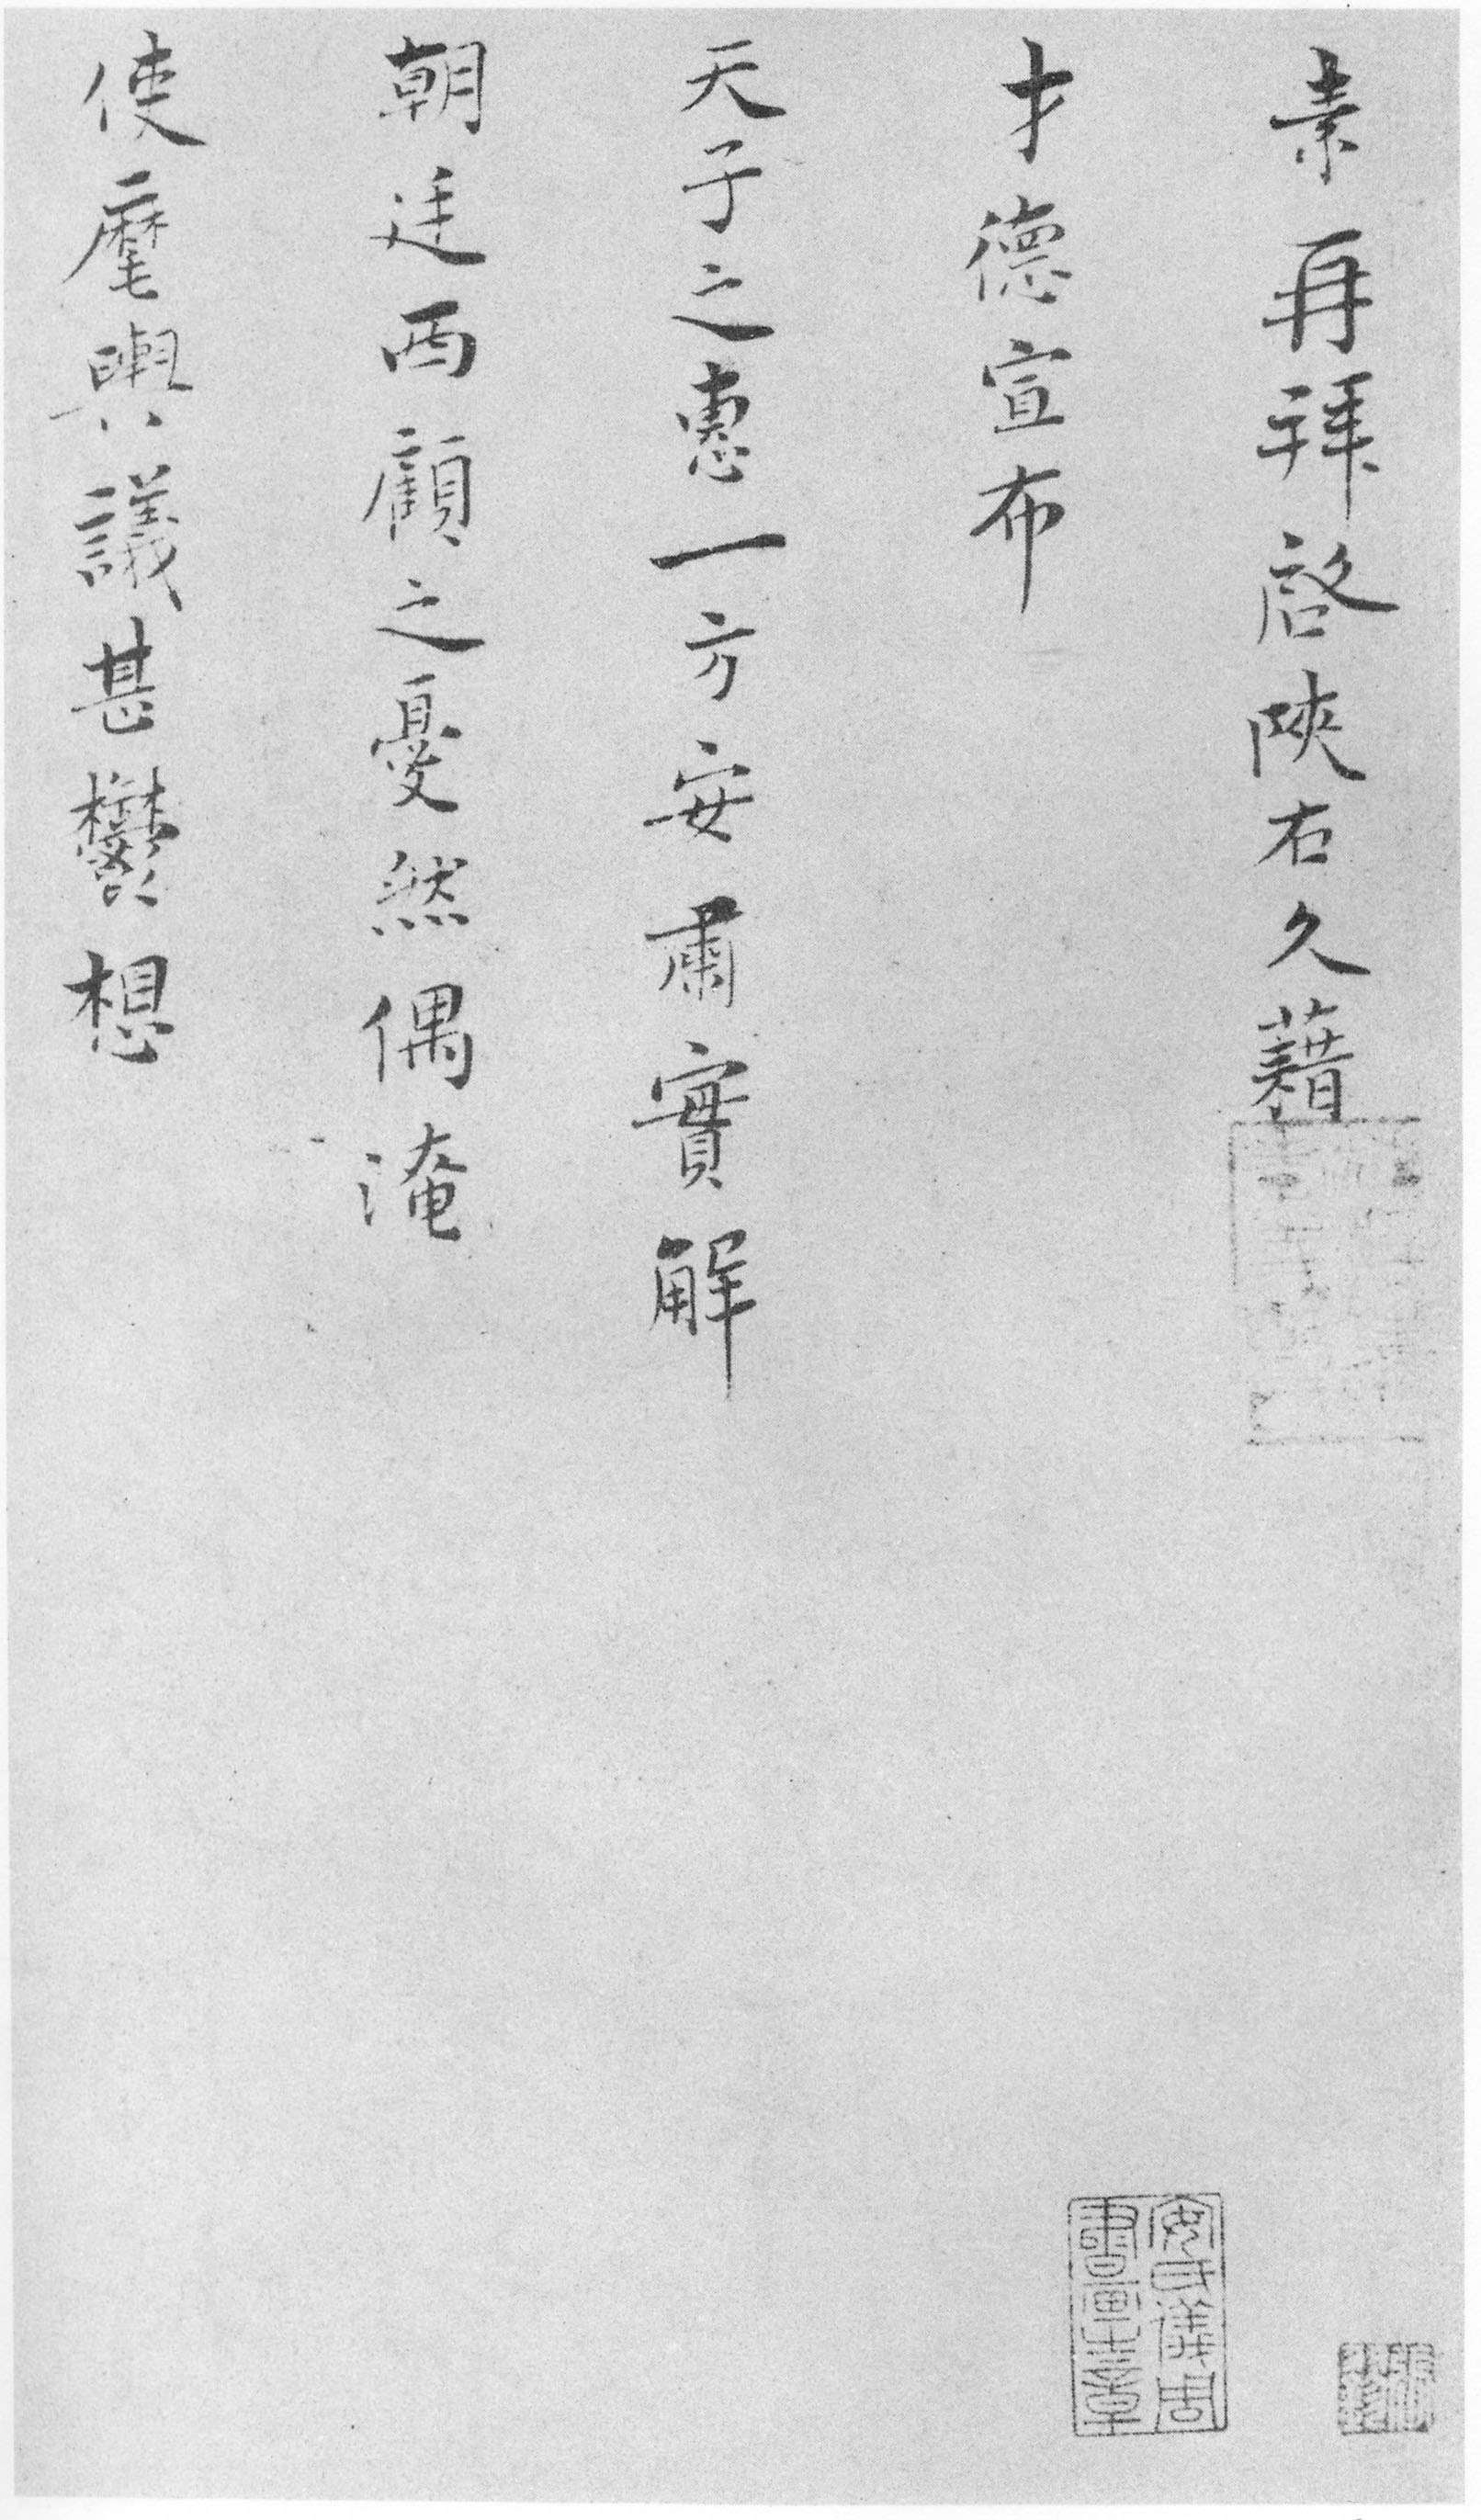 素再拜啓陝右久藉
才德宣布
天子之惠一方安肅實解
朝廷西顧之憂然偶淹
使麾輿議甚鬱想
安氏儀周
書畫之章